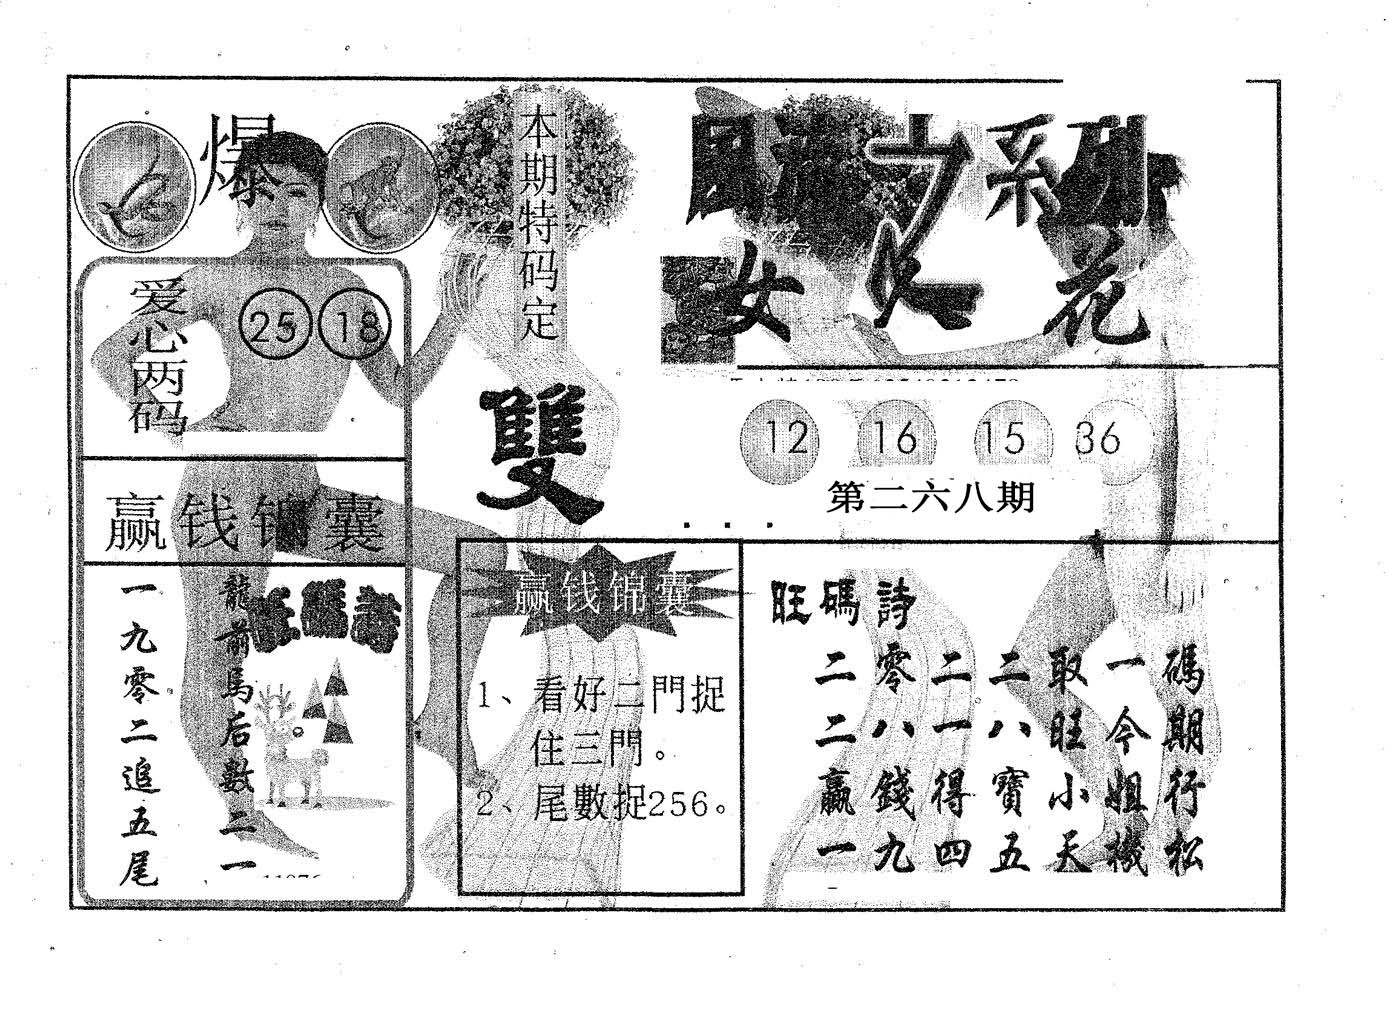 爆
本期特码定
雙
爱心两码
25 18
赢钱锦囊
一九零二追五尾
龍前馬后數二一
旺碼詩
系列
女人花
12 16 15 36
第二六八期
赢钱锦囊
1、看好二門捉
住三門。
2、尾數捉256。
旺碼詩
二零二二取一碼
二八一八旺今期
贏錢得寶小姐行
一九四五天機松